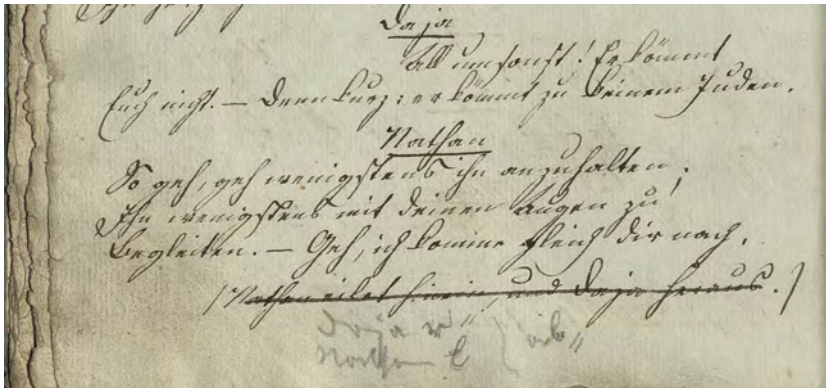 Daja
All umsonst! Er kömmt
Euch nicht. — Denn kurz: er kömmt zu keinem Juden.
Nathan
So geh, geh wenigstens ihn anzuhalten;
Ihn wenigstens mit deinen Augen zu
Begleiten. — Geh, ich komme gleich dir nach.
(Nathan eilet hinein, und Daja heraus.)
Daja r" ab"
Nathan l